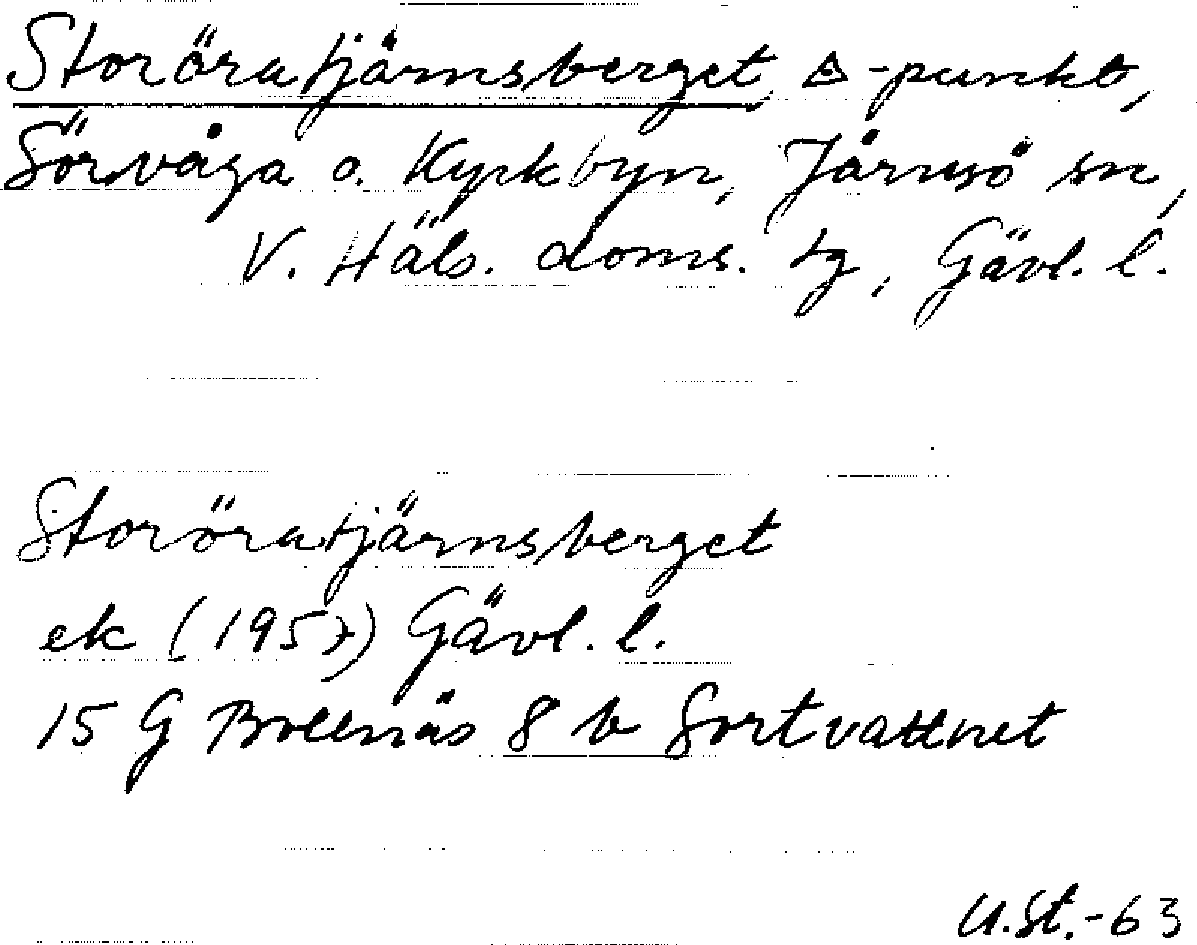 Storöratjärnsberget, ∆-punkt,
Sörvåga o. Kyrkbyn, Järvsö sn,
V. Häls. doms. tg, Gävl. l.
Storöratjärnsberget
ek (1957) Gävl. l.
15 G Bollnäs 8 b Sortvattnet
U.St.-63